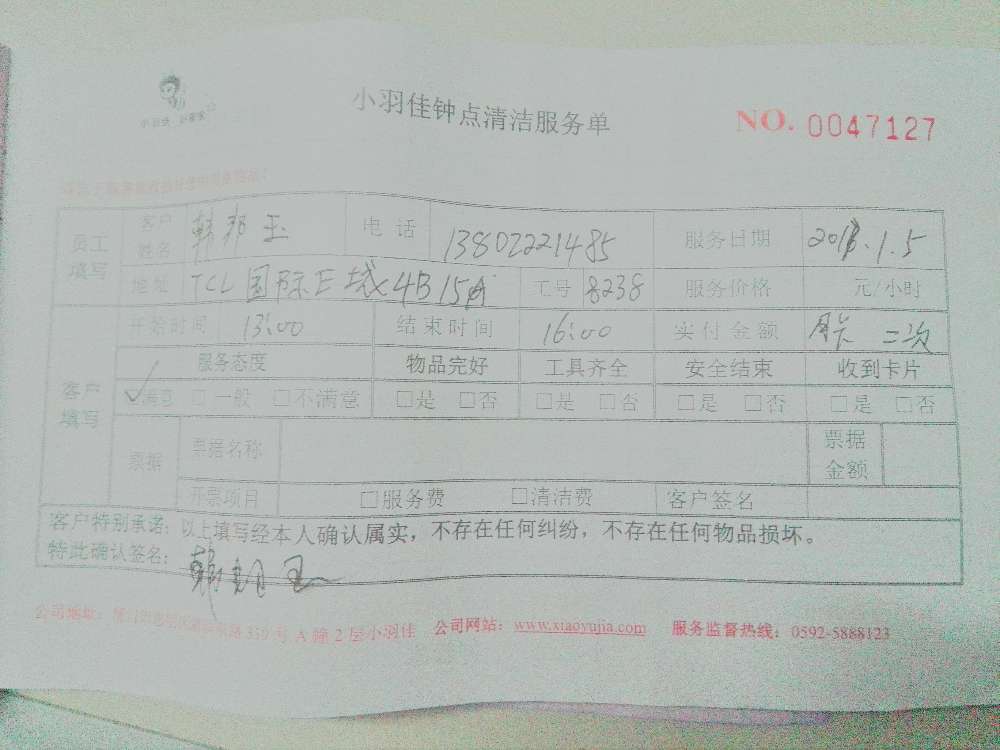 小羽佳钟点清洁服务单
NO. 0047127
员工填写 客户姓名 韩邦玉 电话 13802221485 服务日期 2018.1.5
地址 TCL国际E城4B15A 工号 8238 服务价格 元/小时
客户填写 开始时间 13:00 结束时间 16:00 实付金额 二次
服务态度 物品完好 工具齐全 安全结束 收到卡片
满意 □一般 □不满意 □是 □否 □是 □否 □是 □否 □是 □否
票据 票据名称 票据金额
开票项目 □服务费 □清洁费 客户签名
客户特别承诺：以上填写经本人确认属实，不存在任何纠纷，不存在任何物品损坏。
特此确认签名：
公司地址： 350号A幢2层小羽佳 公司网站：www.xiaoyujia.com 服务监督热线：0592-5888123